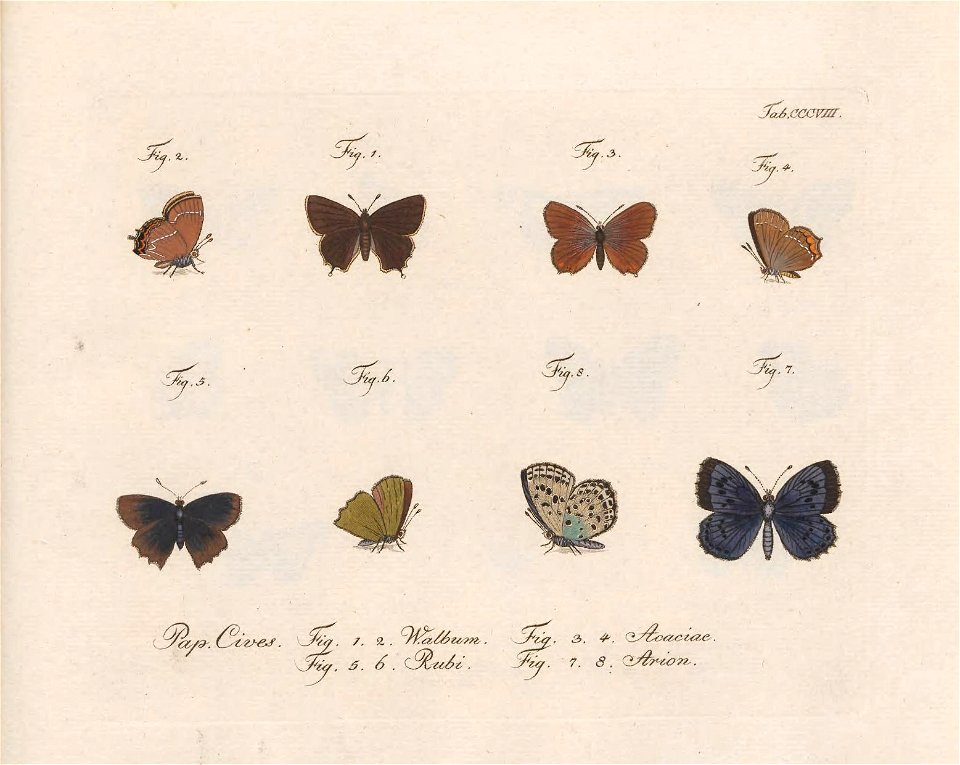 Tab.CCCVIII.
Fig. 2.
Fig. 1.
Fig. 3.
Fig. 4.
Fig. 5.
Fig. 6.
Fig. 8.
Fig. 7.
Pap. Cives. Fig. 1. 2. Walbum. Fig. 3. 4. Acaciae.
Fig. 5. 6. Rubi. Fig. 7. 8. Arion.